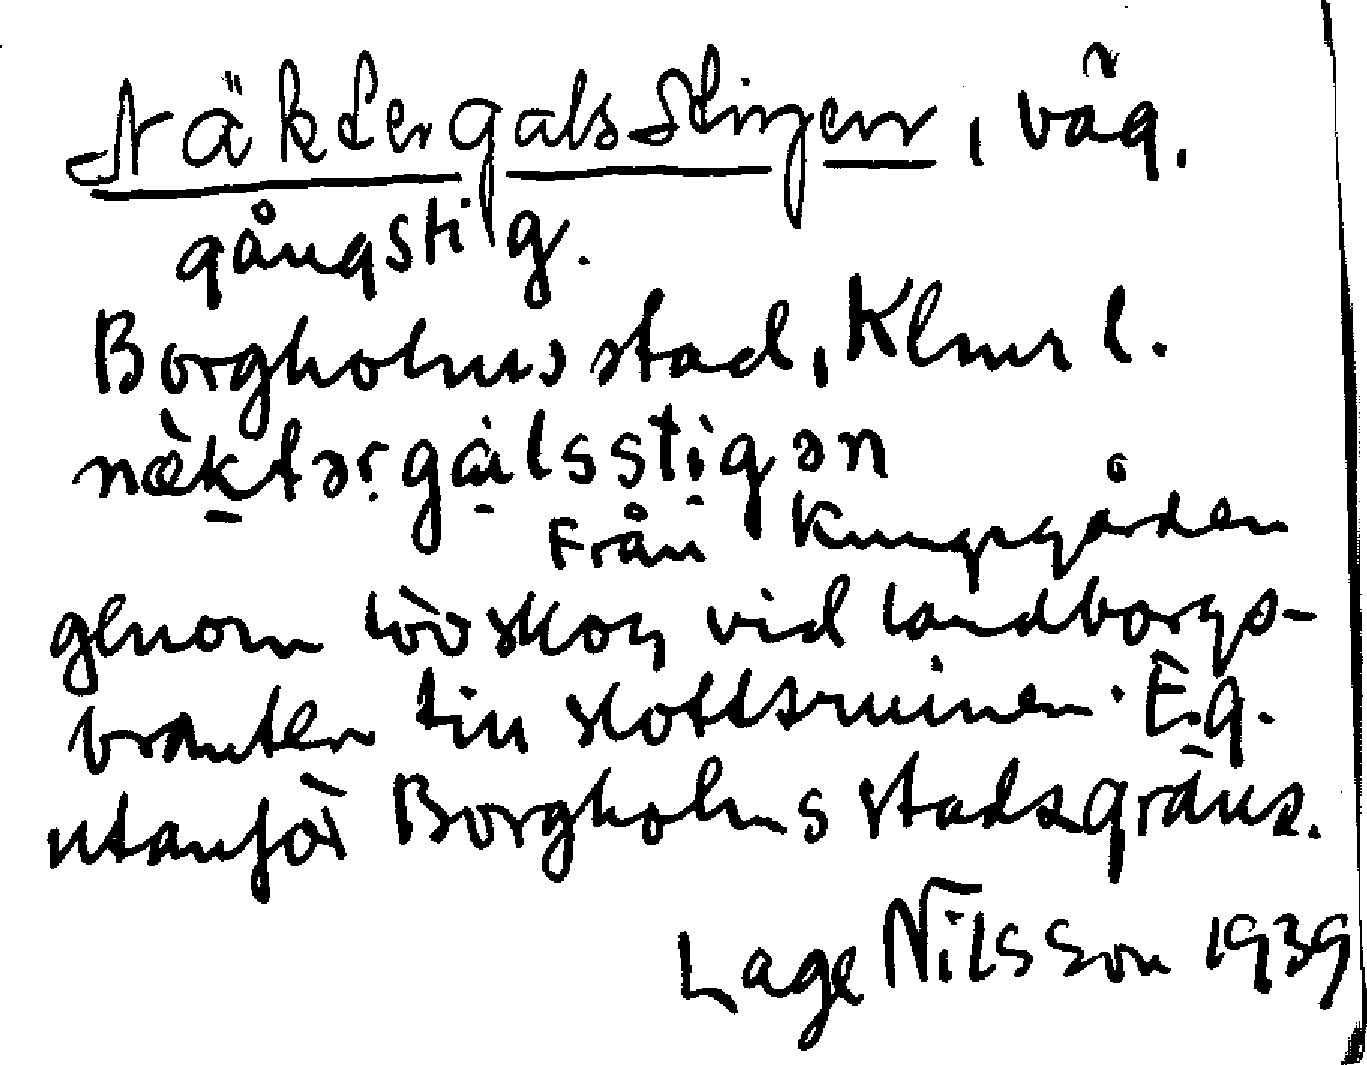 Näktergalsstigen, väg,
gångstig.
Borgholms stad, Klmr l.
näktərgàlsstìgən
Från Kungsgården
genom lövskog vid landborgs-
branten till slottsruinen. Eg.
utanför Borgholms stadsgräns.
Lage Nilsson 1939